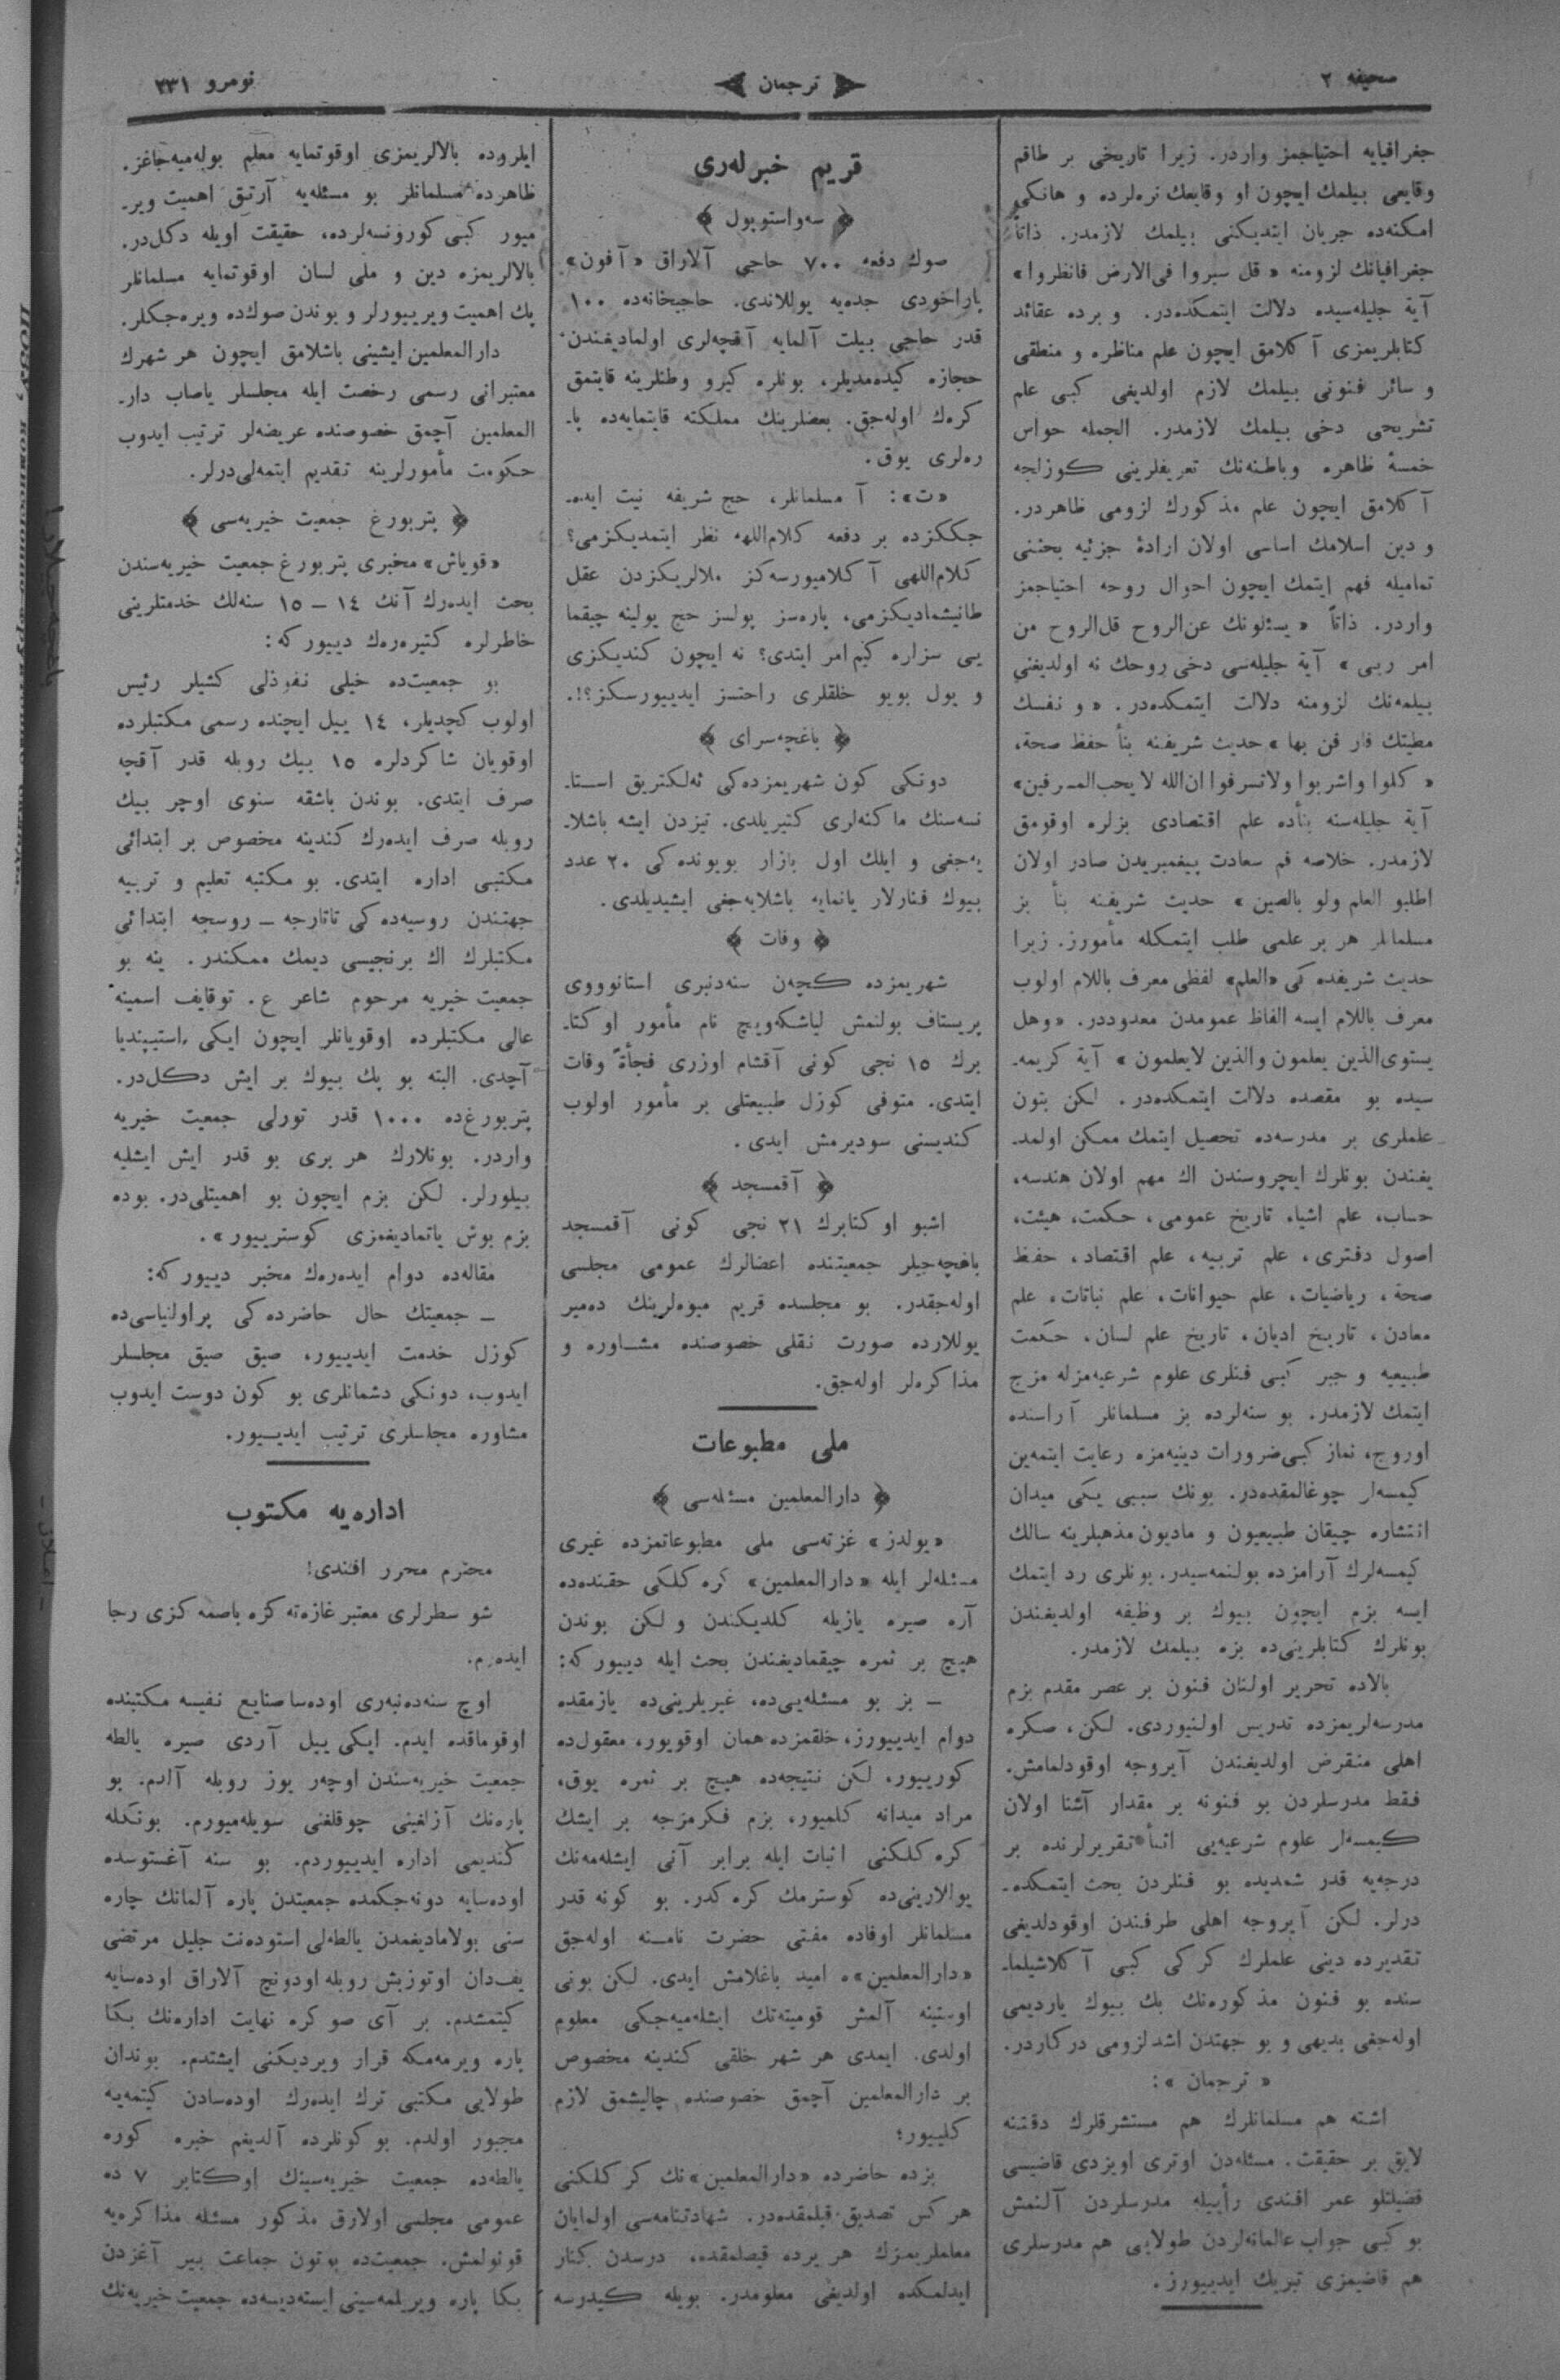 صحيفه ٢
ترجمان
نومرو ٢٣١
جغرافيايه احتياجمز واردر. زيرا تاريخى بر طاقم
وقايعى بيلمك ايچون او وقايعك نره‌لرده و هانكى
امكنه‌ده جريان ايتديكنى بيلمك لازمدر. ذاتاً
جغرافيانك لزومنه «قل سيروا فى‌الارض فانظروا»
آية جليله‌سيده دلالت ايتمكده‌در. و برده عقائد
كتابلريمزى آكلامق ايچون علم مناظره و منطقى
و سائر فنونى بيلمك لازم اولديغى كبى علم
تشريحى دخى بيلمك لازمدر. الجمله حواس
خمسهٔ ظاهره وباطنه‌نك تعريفلرينى كوزلجه
آكلامق ايچون علم مذكورك لزومى ظاهردر.
و دين اسلامك اساسى اولان ارادهٔ جزئيه بحثنى
تماميله فهم ايتمك ايچون احوال روحه احتياجمز
واردر. ذاتاً «يسئلونك عن‌الروح قل‌الروح من
امر ربى» آية جليله‌سى دخى روحك نه اولديغنى
بيلمه‌نك لزومنه دلالت ايتمكده‌در. «و نفسك
مطيتك فارفن بها» حديث شريفنه بنأ حفظ صحة،
«كلوا واشربوا ولاتسرفوا ان‌الله لا يحب‌المسرفين»
آية جليله‌سنه بنأده علم اقتصادى بزلره اوقومق
لازمدر. خلاصه فم سعادت پيغمبريدن صادر اولان
اطلبو العلم ولو بالصين» حديث شريفنه بنأ بز
مسلمانلر هر بر علمى طلب ايتمكله مأمورز. زيرا
حديث شريفده كى «العلم» لفظى معرف باللام اولوب
معرف باللام ايسه الفاظ عمومدن معدوددر. «وهل
يستوى‌الذين يعلمون والذين لايعلمون» آية كريمه-
سيده بو مقصده دلالت ايتمكده‌در. لكن بتون
علملرى بر مدرسه‌ده تحصيل ايتمك ممكن اولمد-
يغندن بونلرك ايچروسندن اك مهم اولان هندسه،
حساب، علم اشياء تاريخ عمومى، حكمت، هيئت،
اصول دفترى، علم تربيه، علم اقتصاد، حفظ
صحة، رياضيات، علم حيوانات، علم نباتات، علم
معادن، تاريخ اديان، تاريخ علم لسان، حكمت
طبيعيه و جبر كبى فنلرى علوم شرعيه‌مزله مزج
ايتمك لازمدر. بو سنه‌لرده بز مسلمانلر آراسنده
اوروج، نماز كبى ضرورات دينيه‌مزه رعايت ايتمه‌ين
كيمسه‌لر چوغالمقده‌در. بونك سببى يكى ميدان
انتشاره چيقان طبيعيون و ماديون مذهبلرينه سالك
كيمسه‌لرك آرامزده بولنمه‌سيدر. بونلرى رد ايتمك
ايسه بزم ايچون بيوك بر وظيفه اولديغندن
بونلرك كتابلرينى‌ده بزه بيلمك لازمدر.
بالاده تحرير اولنان فنون بر عصر مقدم بزم
مدرسه‌لريمزده تدريس اولنيوردى. لكن، صكره
اهلى منقرض اولديغندن آيروجه اوقودلمامش.
فقط مدرسلردن بو فنونه بر مقدار آشنا اولان
كيمسه‌لر علوم شرعيه‌يى اثنأ تقريرلرنده بر
درجه‌يه قدر شمديده بو فنلردن بحث ايتمكده-
درلر. لكن آيروجه اهلى طرفندن اوقودلديغى
تقديرده دينى علملرك كركى كبى آكلاشيلما-
سنده بو فنون مذكوره‌نك بك بيوك يارديمى
اوله‌جغى بديهى و بو جهتدن اشد لزومى دركاردر.
«ترجمان»:
اشته هم مسلمانلرك هم مستشرقلرك دقتنه
لايق بر حقيقت. مسئله‌دن اوترى اويزدى قاضيسى
فضيلتلو عمر افندى رأييله مدرسلردن آلنمش
بو كبى جواب عالمانه‌لردن طولايى هم مدرسلرى
هم قاضيمزى تبريك ايدييورز.
قريم خبرله‌رى
﴿ سه‌واستوپول ﴾
صوك دفعه ٧٠٠ حاجى آلاراق «آفون»
پاراخودى جده‌يه يوللاندى. حاجيخانه‌ده ١٠٠
قدر حاجى بيلت آلمايه آقچه‌لرى اولماديغندن
حجازه كيده‌مديلر، بونلره كيرو وطنلرينه قايتمق
كره‌ك اوله‌جق. بعضلرينك مملكته قايتمايه‌ده پا-
ره‌لرى يوق.
«ت»: آ مسلمانلر، حج شريفه نيت ايده-
جككزده بر دفعه كلام‌اللهه نظر ايتمديكزمى؟
كلام‌اللهى آكلاميورسه‌كز ملالريكزدن عقل
طانيشماديكزمى، پاره‌سز پولسز حج يولينه چيقما
يى سزاره كيم امر ايتدى؟ نه ايچون كنديكزى
و يول بويو خلقلرى راحتسز ايدييورسكز؟!.
﴿ باغچه‌سراى ﴾
دونكى كون شهريمزده‌كى ئه‌لكتريق استا-
نسه‌سنك ماكنه‌لرى كتيريلدى. تيزدن ايشه باشلا-
يه‌جغى و ايلك اول بازار بويونده‌كى ٢٠ عدد
بيوك فنارلار يانمايه باشلايه‌جغى ايشيديلدى.
﴿ وفات ﴾
شهريمزده كچه‌ن سنه‌دنبرى استانوووى
پريستاف بولنمش لياشكه‌ويچ نام مأمور اوكتا-
برك ١٥ نجى كونى آقشام اوزرى فجأةً وفات
ايتدى. متوفى كوزل طبيعتلى بر مأمور اولوب
كنديسنى سوديرمش ايدى.
﴿ آقمسجد ﴾
اشبو اوكتابرك ٢١ نجى كونى آقمسجد
باغچه‌جيلر جمعيتنده اعضالرك عمومى مجلسى
اوله‌جقدر. بو مجلسده قريم ميوه‌لرينك ده‌مير
يوللارده صورت نقلى خصوصنده مشاوره و
مذاكره‌لر اوله‌جق.
ملى مطبوعات
﴿ دارالمعلمين مسئله‌سى ﴾
«يولدز» غزته‌سى ملى مطبوعاتمزده غيرى
مسئله‌لر ايله «دارالمعلمين» كره‌كلكى حقنده‌ده
آره صيره يازيله كلديكندن و لكن بوندن
هيچ بر ثمره چيقماديغندن بحث ايله دييور كه:
— بز بو مسئله‌يى‌ده، غيريلرينى‌ده يازمقده
دوام ايدييورز، خلقمزده همان اوقويور، معقول‌ده
كورييور، لكن نتيجه‌ده هيچ بر ثمره يوق،
مراد ميدانه كلميور، بزم فكرمزجه بر ايشك
كره‌كلكنى اثبات ايله برابر آنى ايشله‌مه‌نك
يوللارينى‌ده كوسترمك كره‌كدر. بو كونه قدر
مسلمانلر اوفاده مفتى حضرت نامنه اوله‌جق
«دارالمعلمين»ه اميد باغلامش ايدى. لكن بونى
اوستينه آلمش قوميته‌نك ايشله‌ميه‌جكى معلوم
اولدى. ايمدى هر شهر خلقى كندينه مخصوص
بر دارالمعلمين آچمق خصوصنده چاليشمق لازم
كلييور؛
بزده حاضرده «دارالمعلمين»نك كركلكنى
هركس تصديق قيلمقده‌در. شهادتنامه‌سى اولمايان
معلملريمزك هر يرده قيصلمقده، درسدن كنار
ايدلمكده اولديغى معلومدر. بويله كيدرسه
ايلروده بالالريمزى اوقوتمايه معلم بوله‌ميه‌جاغز.
ظاهرده مسلمانلر بو مسئله‌يه آرتق اهميت وير-
ميور كبى كورونسه‌لرده، حقيقت اويله دكل‌در.
بالالريمزه دين و ملى لسان اوقوتمايه مسلمانلر
پك اهميت ويرييورلر و بوندن صوك‌ده ويره‌جكلر.
دارالمعلمين ايشينى باشلامق ايچون هر شهرك
معتبرانى رسمى رخصت ايله مجلسلر ياصاب دار-
المعلمين آچمق خصوصنده عريضه‌لر ترتيب ايدوب
حكومت مأمورلرينه تقديم ايتمه‌لى‌درلر.
﴿ پتربورغ جمعيت خيريه‌سى ﴾
«قوياش» مخبرى پتربورغ جمعيت خيريه‌سندن
بحث ايده‌رك آنك ١٤ — ١٥ سنه‌لك خدمتلرينى
خاطرلره كتيره‌ره‌ك دييور كه:
بو جمعيت‌ده خيلى نفوذلى كشيلر رئيس
اولوب كچديلر، ١٤ ييل ايچنده رسمى مكتبلرده
اوقويان شاكردلره ١٥ بيك روبله قدر آقچه
صرف ايتدى. بوندن باشقه سنوى اوچر بيك
روبله صرف ايده‌رك كندينه مخصوص بر ابتدائى
مكتبى اداره ايتدى. بو مكتبه تعليم و تربيه
جهتندن روسيه‌ده كى تاتارجه — روسجه ابتدائى
مكتبلرك اك برنجيسى ديمك ممكندر. ينه بو
جمعيت خيريه مرحوم شاعر ع. توقايف اسمينه
عالى مكتبلرده اوقويانلر ايچون ايكى استيپنديا
آچدى. البته بو پك بيوك بر ايش دكل‌در.
پتربورغ‌ده ١٠٠٠ قدر تورلى جمعيت خيريه
واردر. بونلارك هر برى بو قدر ايش ايشليه
بيلورلر. لكن بزم ايچون بو اهميتلى‌در. بوده
بزم بوش ياتماديغمزى كوسترييور».
مقاله‌ده دوام ايده‌رك مخبر دييور كه:
— جمعيتك حال حاضرده‌كى پراولنياسى‌ده
كوزل خدمت ايدييور، صيق صيق مجلسلر
ايدوب، دونكى دشمانلرى بو كون دوست ايدوب
مشاوره مجلسلرى ترتيب ايدييور.
اداره‌يه مكتوب
محترم محرر افندى!
شو سطرلرى معتبر غازه‌ته‌كزه باصمه‌كزى رجا
ايده‌رم.
اوچ سنه‌ده‌نبه‌رى اوده‌سا صنايع نفيسه مكتبنده
اوقوماقده ايدم. ايكى ييل آردى صيره يالطه
جمعيت خيريه‌سندن اوچه‌ر يوز روبله آلدم. بو
پاره‌نك آزلغينى چوقلغنى سويله‌ميورم. بونكله
كنديمى اداره ايدييوردم. بو سنه آغستوسده
اوده‌سايه دونه‌جكمده جمعيتدن پاره آلمانك چاره
سنى بولاماديغمدن يالطه‌لى استوده‌نت جليل مرتضى
يف‌دان اوتوزبش روبله اودونچ آلاراق اوده‌سايه
كيتمشدم. بر آى صوكره نهايت اداره‌نك بكا
پاره ويرمه‌مكه قرار ويرديكنى ايشتدم. بوندان
طولايى مكتبى ترك ايده‌رك اوده‌سادن كيتمه‌يه
مجبور اولدم. بو كونلرده آلديغم خبره كوره
يالطه‌ده جمعيت خيريه‌سينك اوكتابر ٧ ده
عمومى مجلسى اولارق مذكور مسئله مذاكره‌يه
قونولمش. جمعيت‌ده بوتون جماعت بير آغزدن
بكا پاره ويريلمه‌سينى ايسته‌ديسه‌ده جمعيت خيريه‌نك